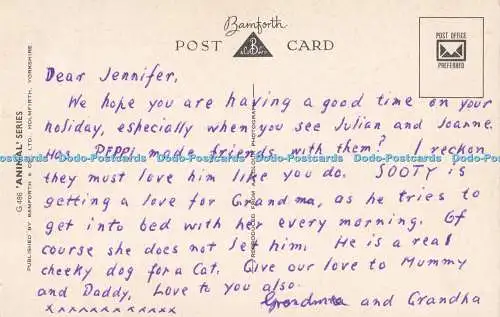 Bamforth
POST CARD
POST OFFICE
PREFERRED
Dear Jennifer,
We hope you are having a good time on your
holiday, especially when you see Julian and Joanne.
Has PEPPI made friends with them? I reckon
they must love him like you do. SOOTY is
getting a love for Grandma, as he tries to
get into bed with her every morning. Of
course she does not let him. He is a real
cheeky dog for a Cat. Give our love to Mummy
and Daddy. Love to you also.
Grandma and Grandha
x x x x x x x x x x x x
G 486 "ANIMAL" SERIES
PUBLISHED BY BAMFORTH & CO. LTD., HOLMFIRTH, YORKSHIRE
Dodo-Postcards Dodo-Postcards Dodo-Postcards Dodo-Postcards Dodo-Postcards